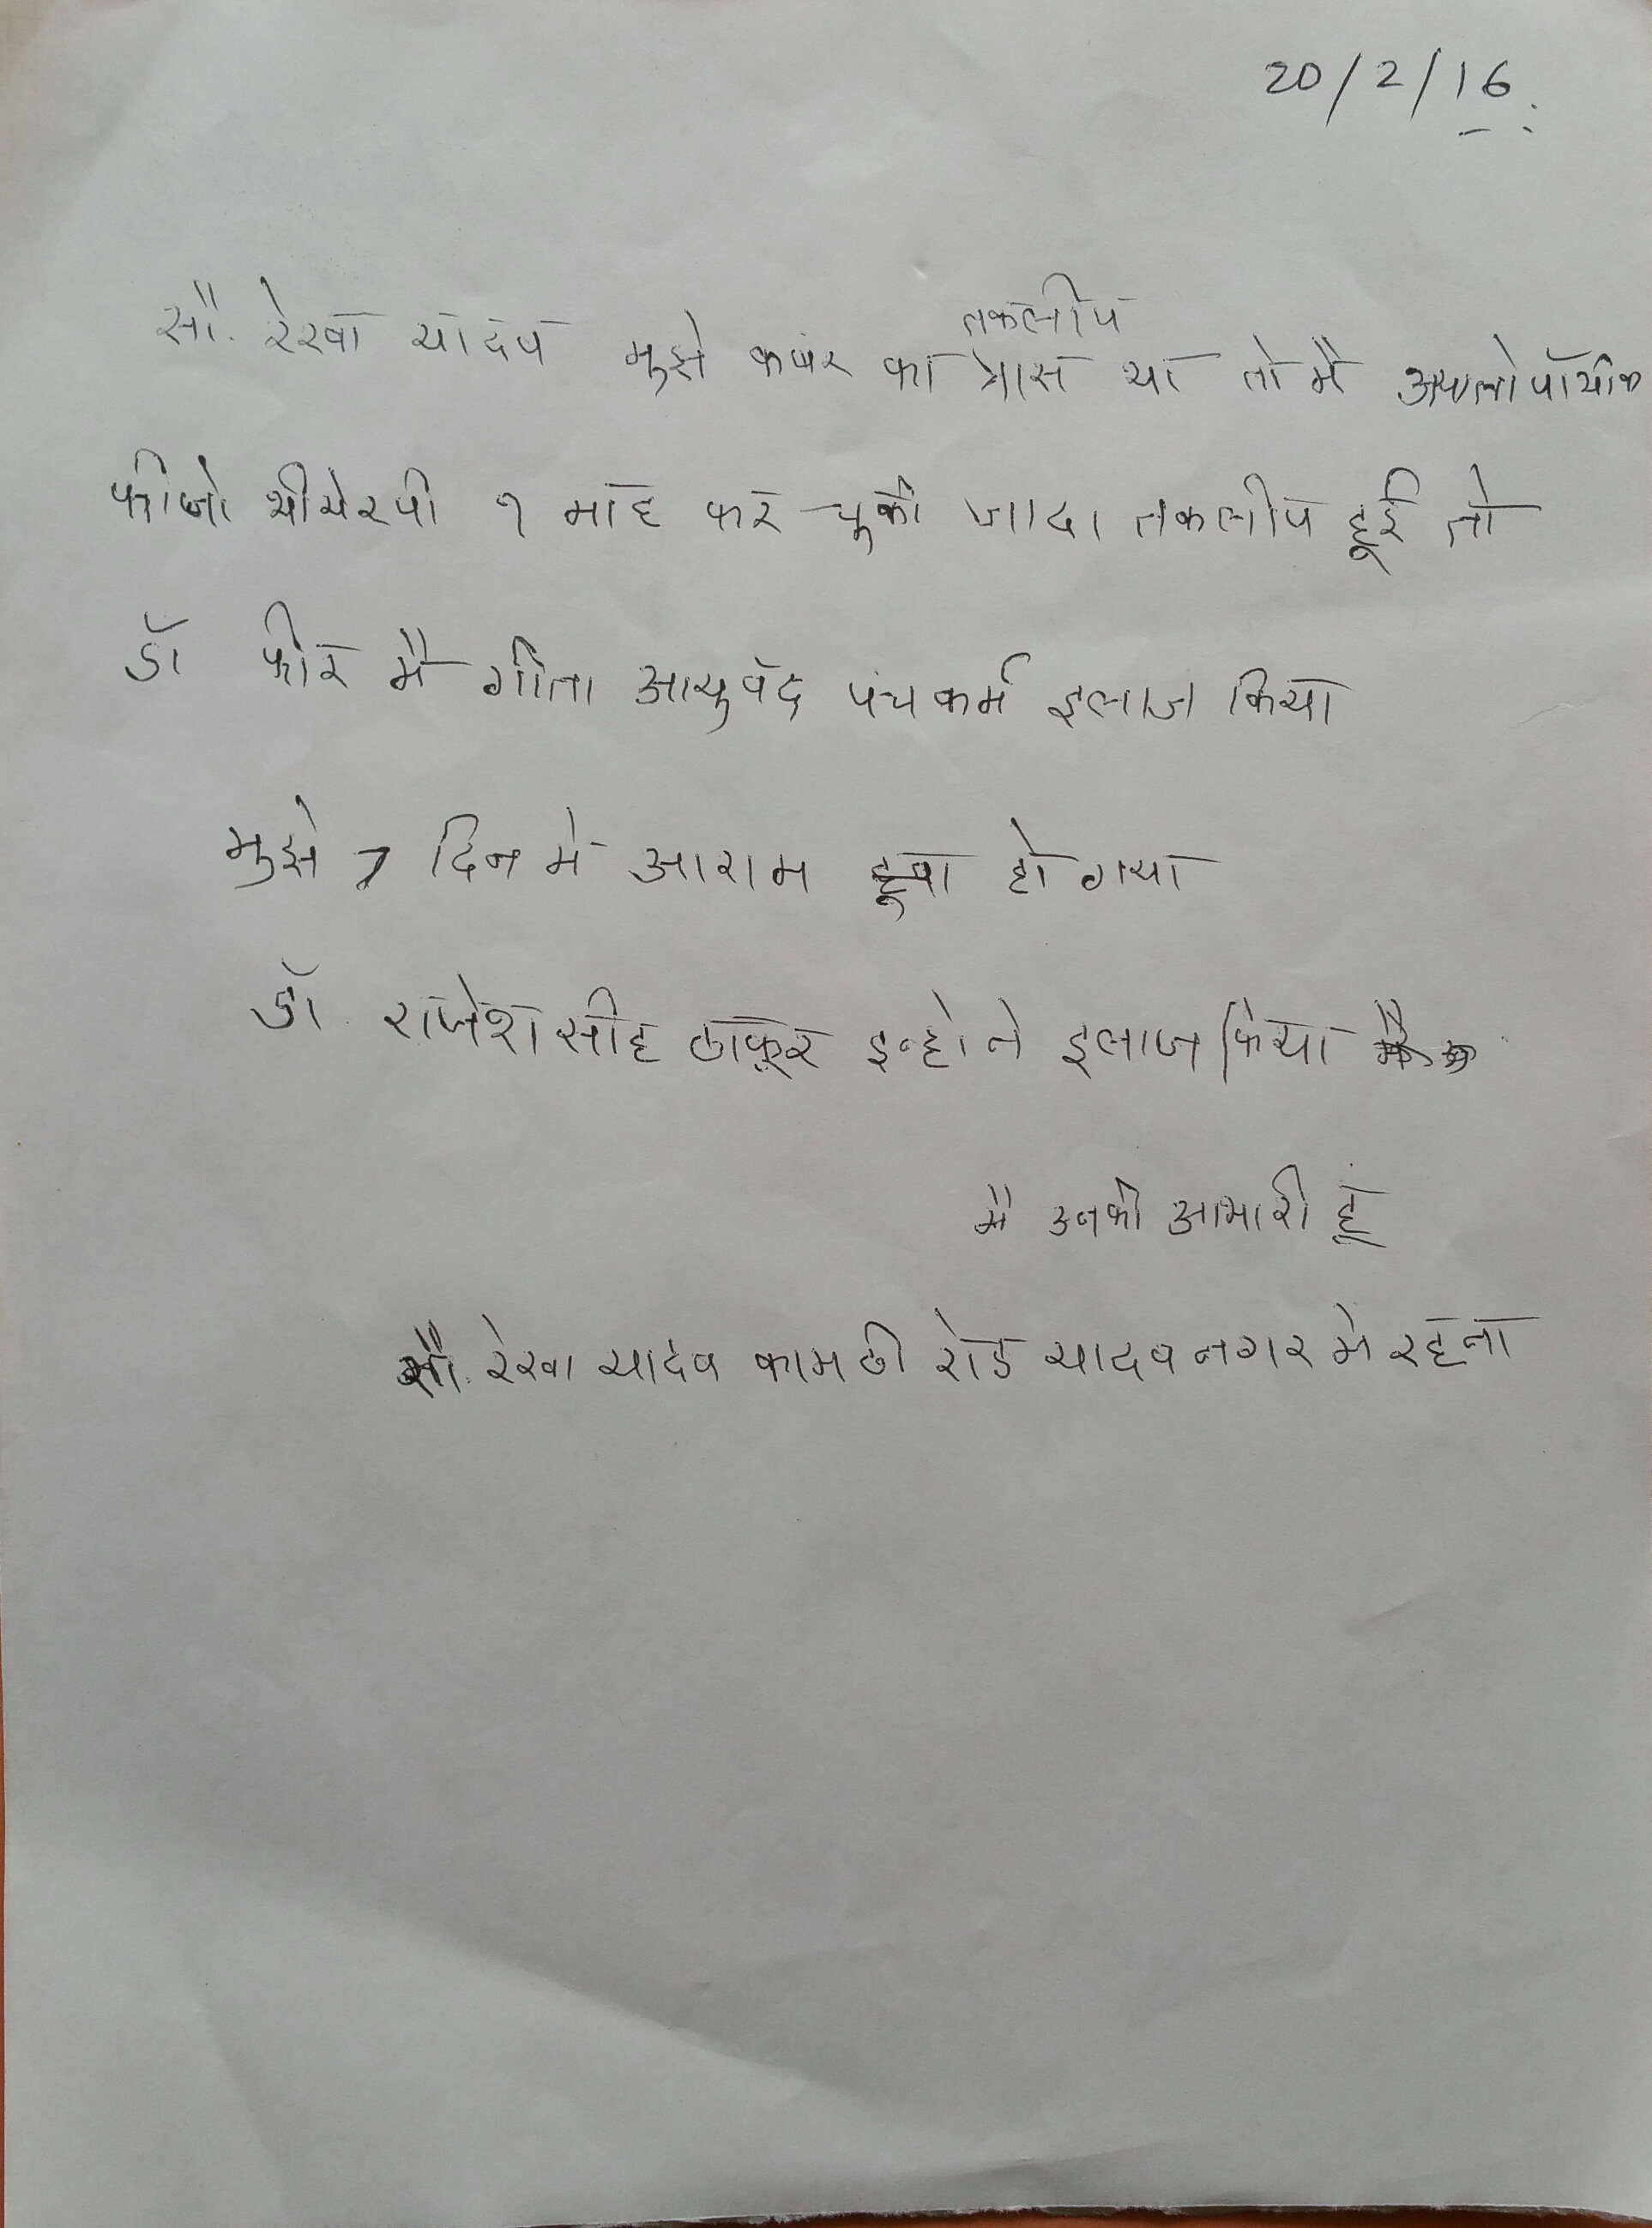 20/2/16.
तकलीप
सौ. रेखा यादव मुझे कंबर का त्रास था तो मै अ‍ॅलोपॉथीक
फीजो थीयेरपी १ माह कर चुकी जादा तकलीप हूई तो
डॉ फीर मै गीता आयुर्वेद पंचकर्म इलाज किया
मुझे 7 दिन मे आराम हूवा हो गया
डॉ. राजेश सींह ठाकूर इन्होने इलाज किया
मै उनकी आभारी हूं
सौ. रेखा यादव कामठी रोड यादव नगर मे रहना